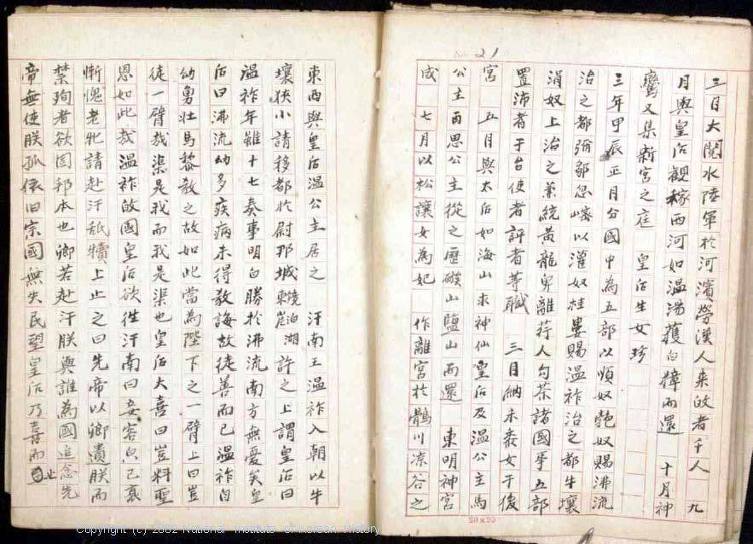 21
三月大閱水陸軍於河濱勞漢人来放者千人 九
月與皇后觀稼西河如温湯獲白獐而還 十月神
鸞又集新宮之庭 皇后生女珍
三年甲辰正月分國中為五部以順奴艴奴賜沸流
治之都弥鄒忽以灌奴桂婁賜温祚治之都牛壤
涓奴上治之兼統黄龍卑離荇人句茶諸國爭五部
置沛者于台使者評者等職 三月納未黍女于後
宮 五月與太后如海山求神仙皇后及温公主馬
公主再思公主從之歷山鹽山而還 東明神宮
成 七月以松讓女為妃 作離宮於鶻川凉谷之
20×20
東西與皇后温公主居之 汗南王温祚入朝以牛
壤狹小請移都於尉那城 湖 許之上謂皇后曰
温祚年雖十七奏事明白勝於沸流南方無憂矣皇
后曰沸流幼多疾病未得敎誨故徒善而已温祚自
幼勇壮馬黎敎之故如此當為陛下之一臂上曰豈
徒一臂哉渠是我而我是渠也皇后大喜曰豈料聖
恩如此哉温祚故國皇后欲徃汗南曰妾容色已衰
慚愧老牝請赴汗舐犢上止之曰先帝以卿遺朕而
禁殉者欲固邦本也卿若赴汗朕與誰為國追念先
帝無使朕孤依旧宗國無失民望皇后乃喜而止
Copyright (c) 2002 National Institute of Korean History